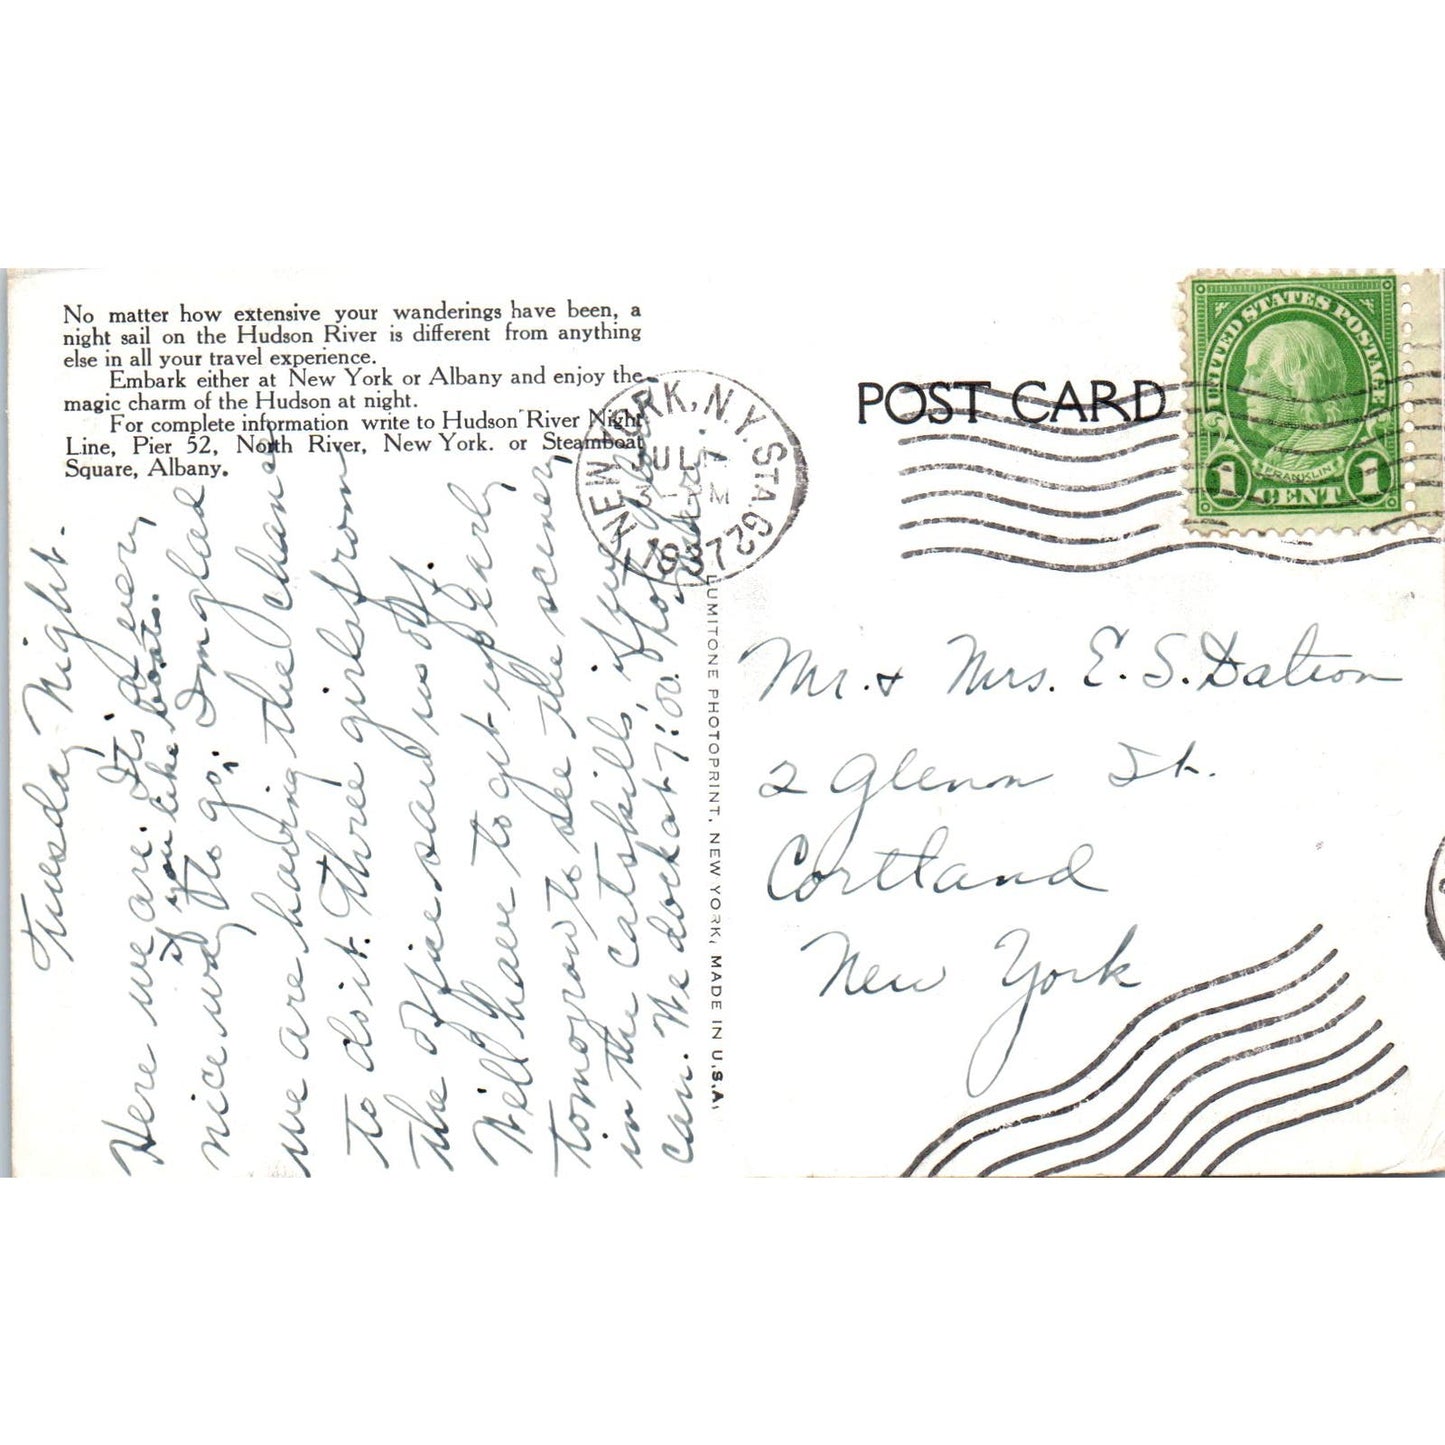 No matter how extensive your wanderings have been, a
night sail on the Hudson River is different from anything
else in all your travel experience.
Embark either at New York or Albany and enjoy the
magic charm of the Hudson at night.
For complete information write to Hudson River Night
Line, Pier 52, North River, New York. or Steamboat
Square, Albany.
Tuesday Night.
Here we are. Its a very
if you like boats.
nice way to go; Im glad
we are having the chance
to do it. Three girls from
the office saw us off.
We'll have to get up early
tomorrow to see the scenery
in the Catskills, if we
can. We dock at 7:00.
LUMITONE PHOTOPRINT, NEW YORK, MADE IN U.S.A.
POST CARD
NEW YORK, N.Y. STA. G
JUL
PM
1937
UNITED STATES POSTAGE
FRANKLIN
1 CENT 1
Mr. & Mrs. E. S. Dalton
2 Glenon St.
Cortland
New York